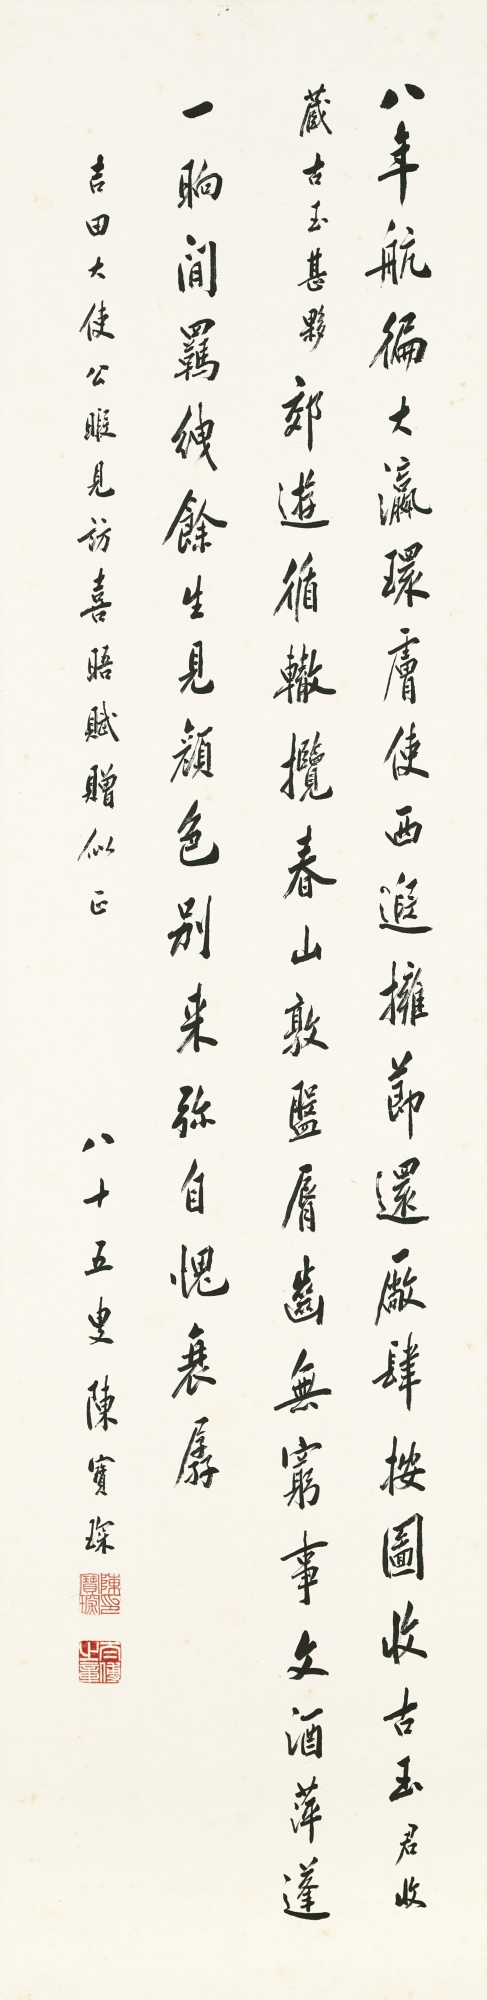 八年航徧大瀛環膺使西邊擁節還廠肆按圖收古玉君收
藏古玉甚夥郊遊循轍攬春山敦盤脣齒無窮事文酒萍蓬
一晌間羈絏餘生見顏色別来弥自愧衰孱
吉田大使公暇見訪喜晤賦贈似正
八十五叟陳寶琛
陳印寶琛
太傅之章